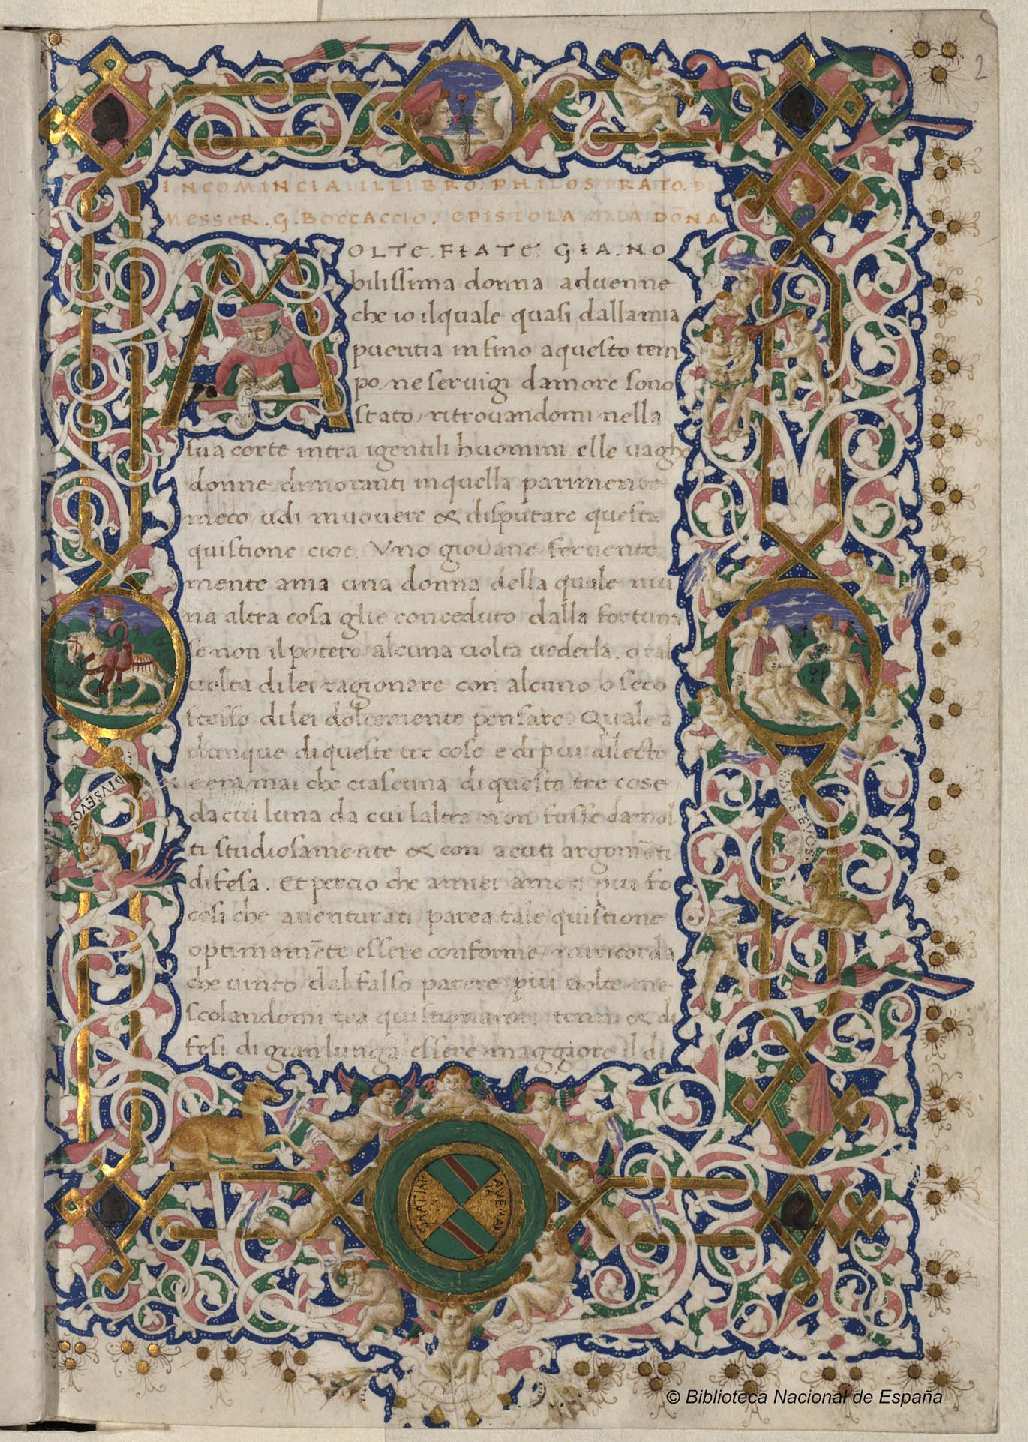 INCOMINCIA IL LIBRO PHILOSTRATO. DI
MESSER. G. BOCCACCIO. EPISTOLA ALA DOÑNA
MOLTE. FIATE. GIA. NO
bilissima donna aduenne
che io ilquale quasi dallamia
pueritia insino aquesto tem
po. ne seruigi damore sono
stato ritrouandomi nella
tua corte intra igentili huomini elle uaghe
donne dimoranti inquella parimente
meco udi muouere & disputare questa
quistione cioe. Vno giouane feruente
mente ama una donna della quale niu
na altra cosa glie conceduto dalla fortuna
se non ilpotere alcuna uolta uederla. o tal
uolta di lei ragionare con alcuno o seco
stesso di lei dolcemente pensare. Quale a
dunque di queste tre cose e di piu dilecto
che ciascuna di queste tre cose
da cui luna da cui laltra non fosse da mol
ti studiosamente & con acuti argomēti
difesa. Et percio che amiei amori piu fo
cosi che auenturati parea tale quistione
optimamēte essere conforme. miricorda
che uinto dal falso parere piu uolte me
scolandomi tra quistionanti tenni & di
fesi di gran lunga essere maggiore il di
© Biblioteca Nacional de España